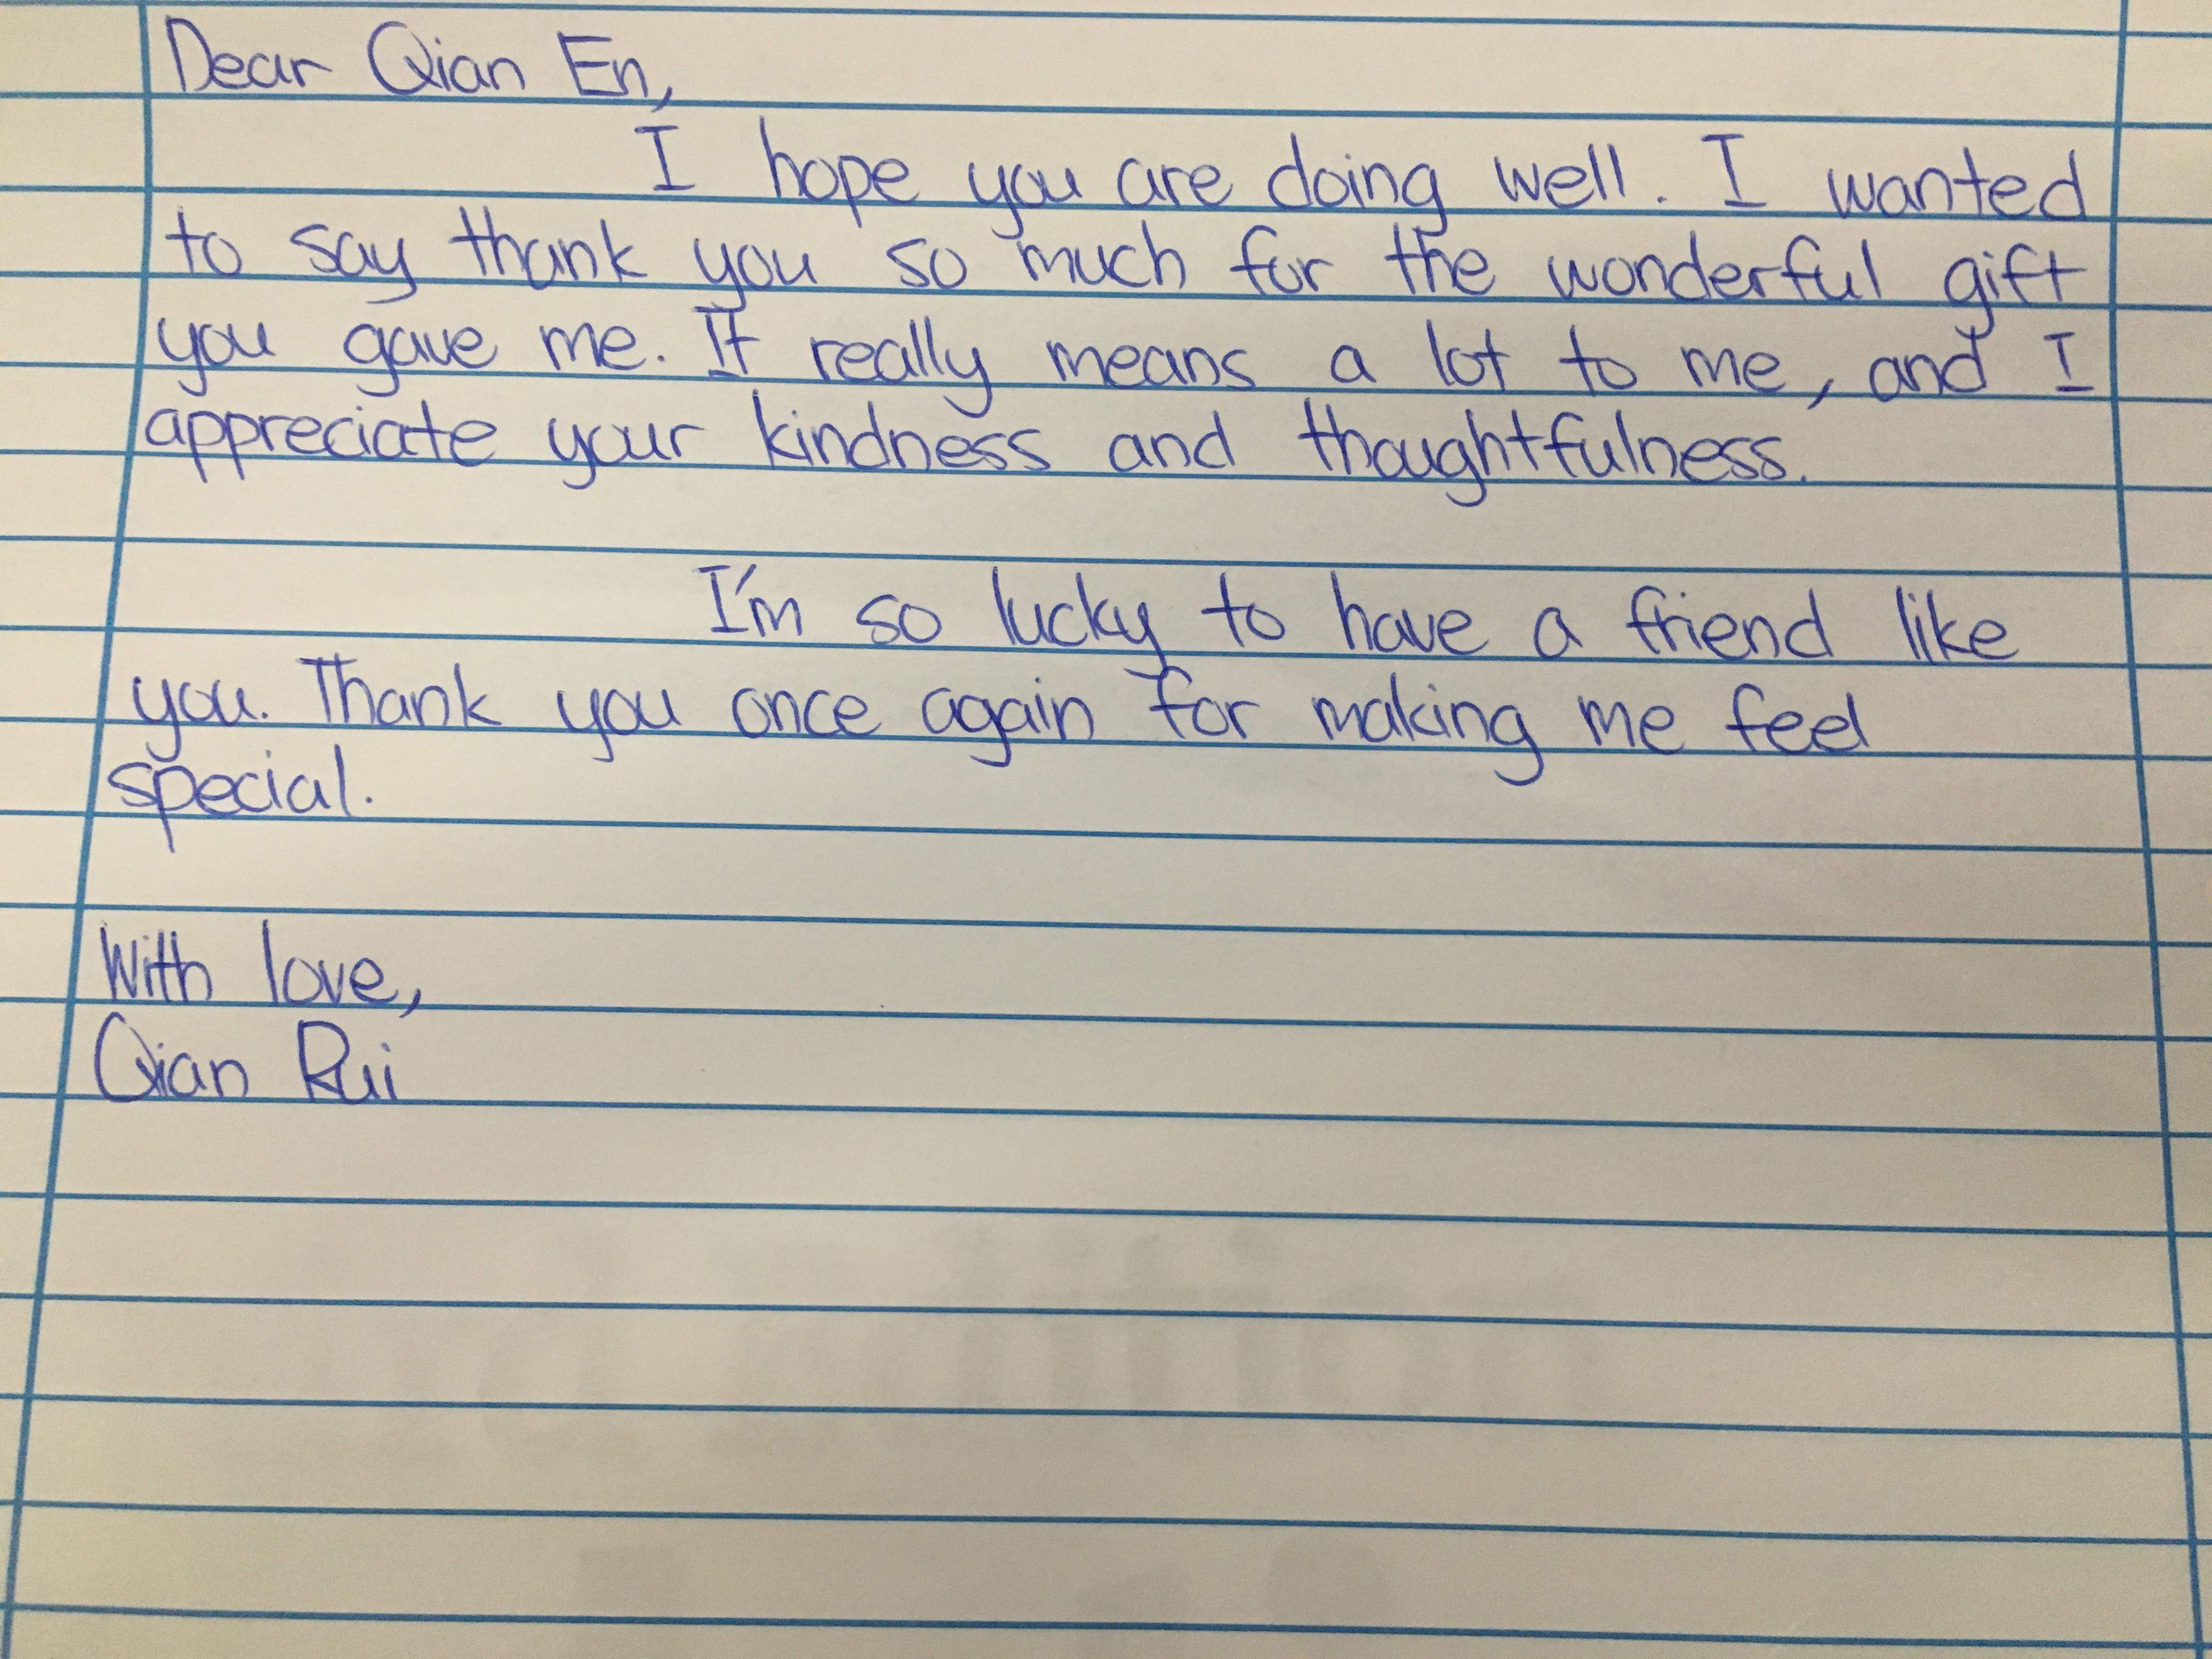 Dear Qian En,
I hope you are doing well. I wanted
to say thank you so much for the wonderful gift
you gave me. It really means a lot to me, and I
appreciate your kindness and thoughtfulness.
I'm so lucky to have a friend like
you. Thank you once again for making me feel
special.
With love,
Qian Rui